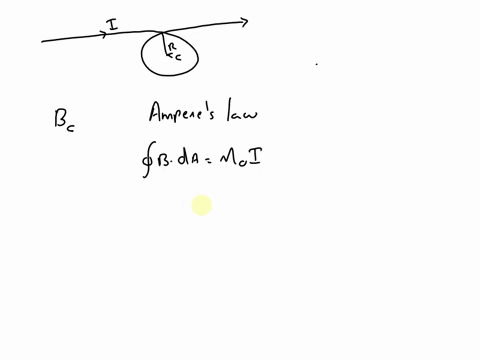 I
R
C
B_c Ampere's law
∮B·dA = M_0 I